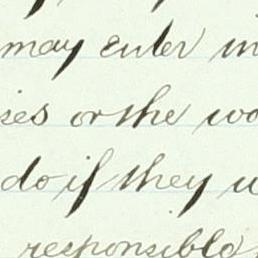 may enter in
or the
do if they
responsible